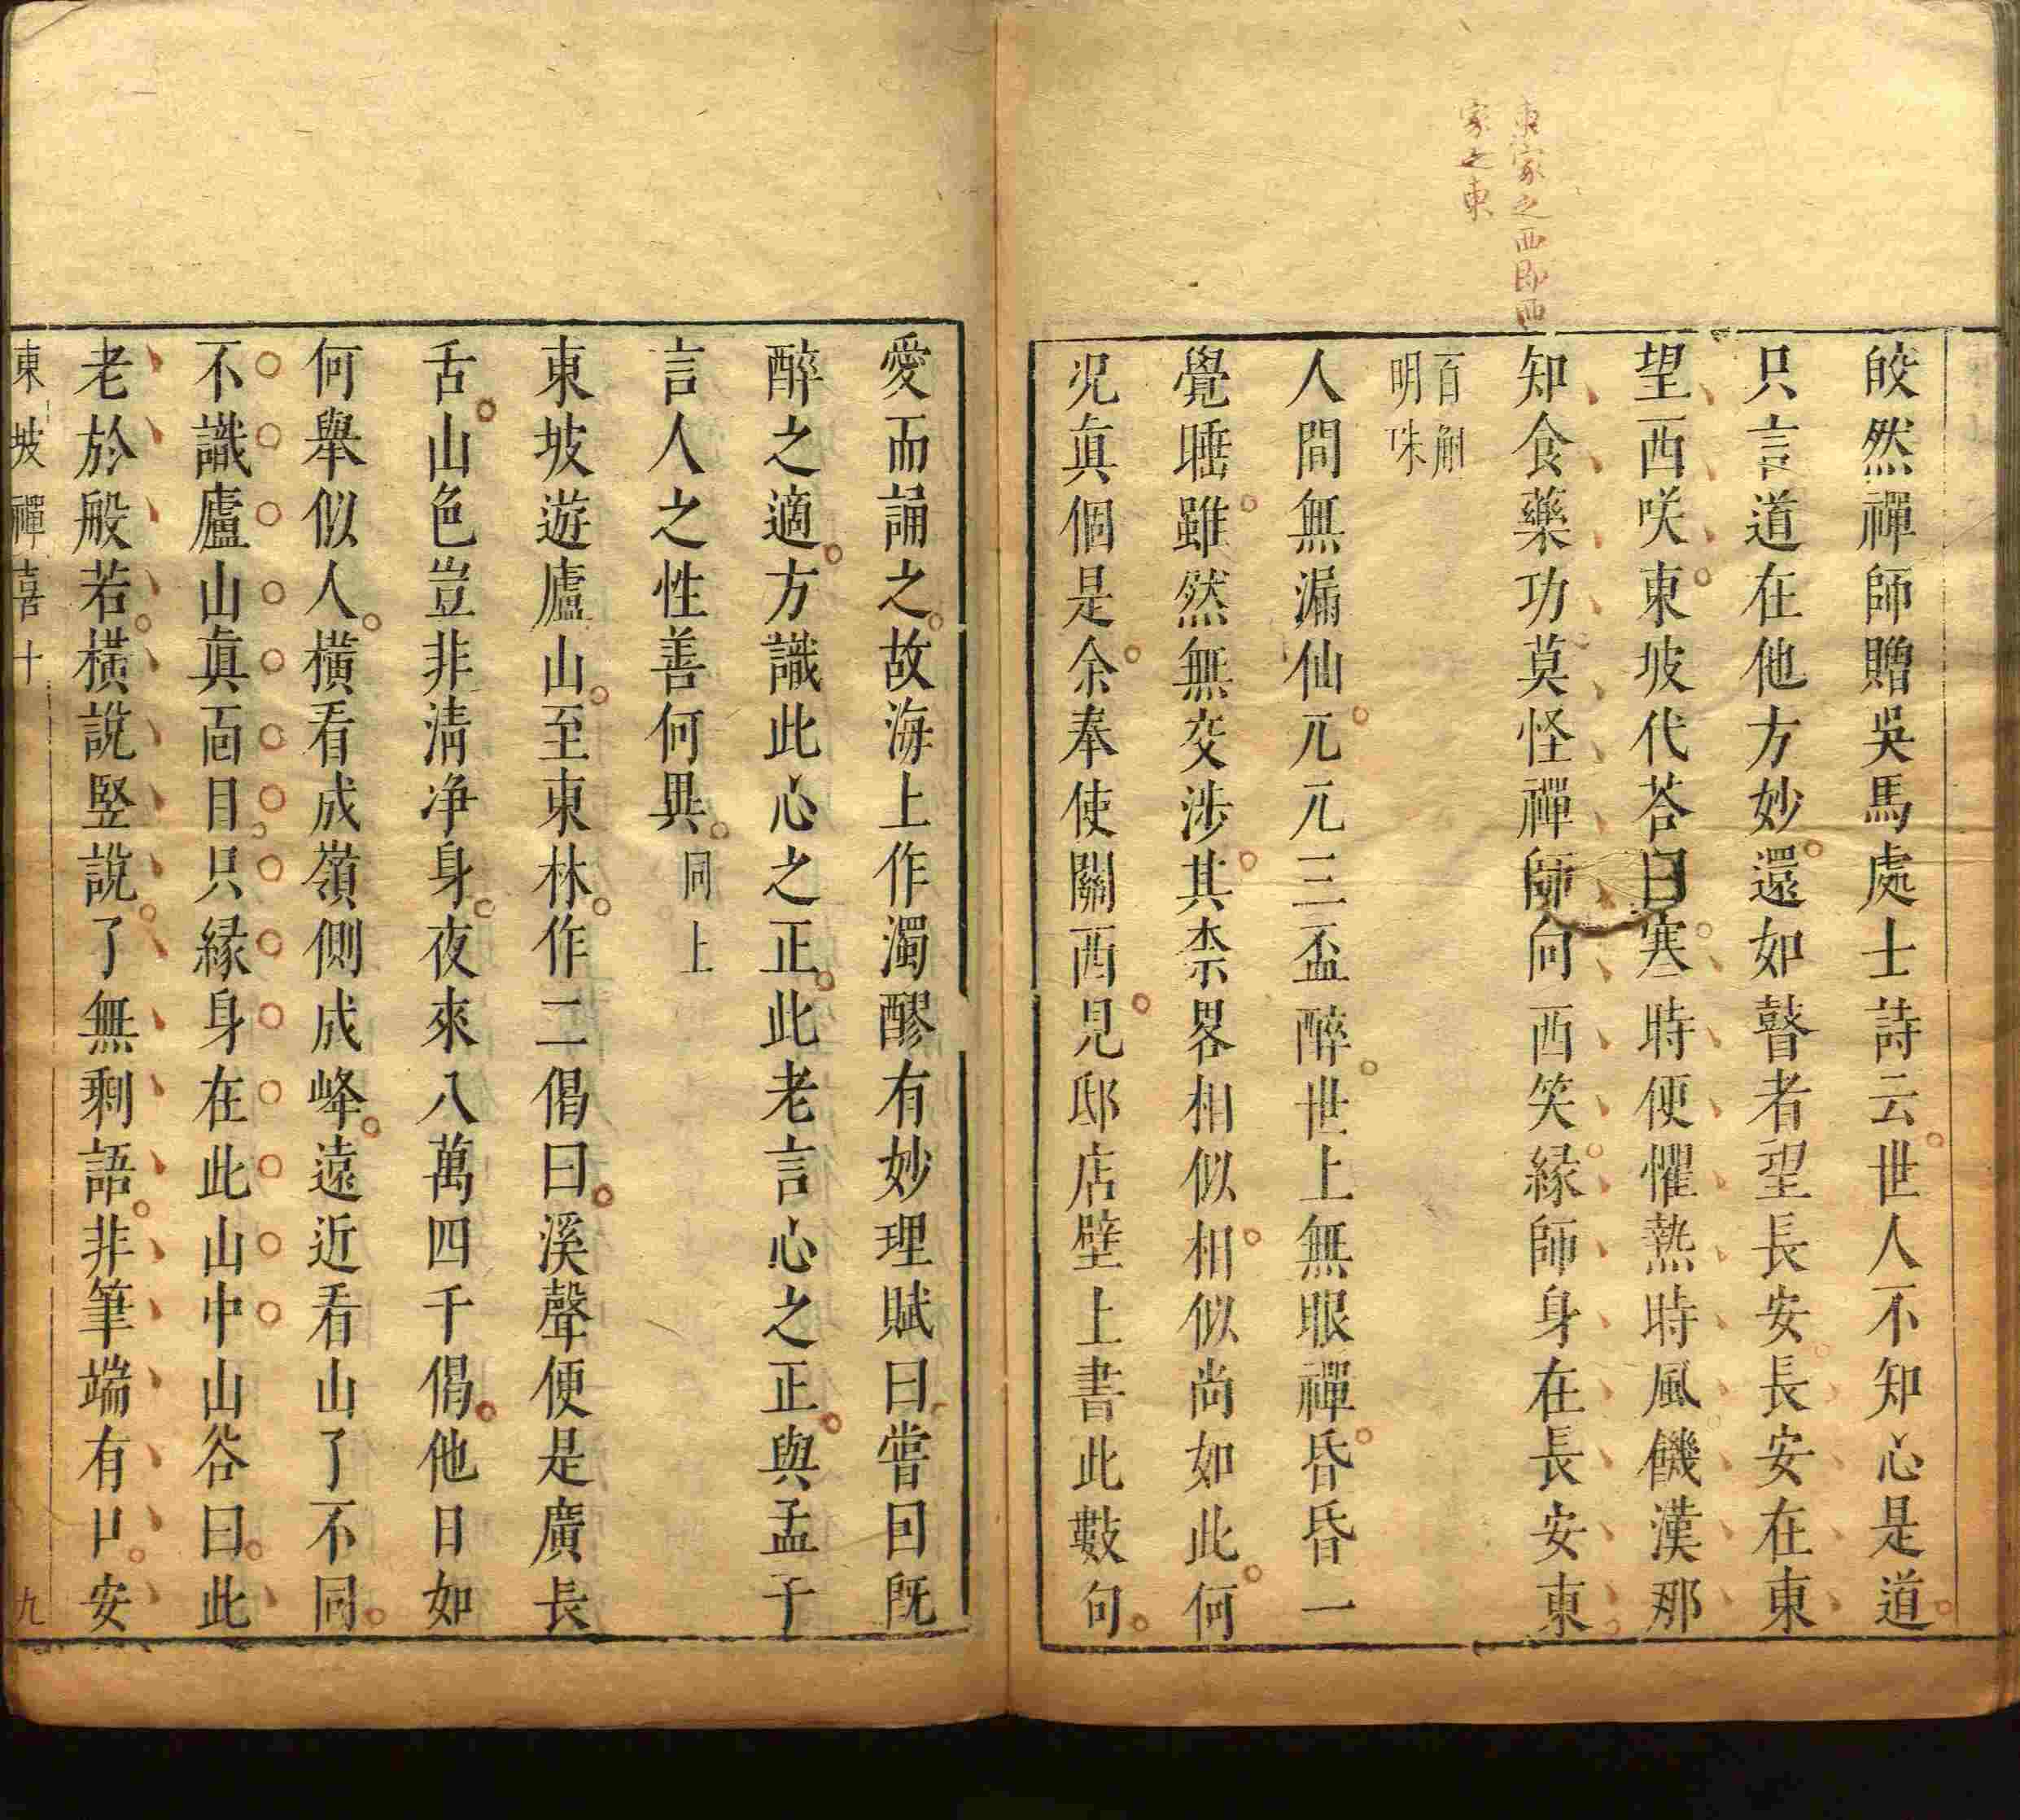 東家之西即西
家之東
皎然禪師贈吳馬處士詩云世人不知心是道
只言道在他方妙還如瞽者望長安長安在東
望西咲東坡代荅曰寒時便懼熱時風饑漢那
知食藥功莫怪禪師向西笑緣師身在長安東
百斛
明珠
人間無漏仙兀兀三盃醉世上無眼禪昏昏一
覺睡雖然無交涉其柰畧相似相似尚如此何
况眞個是余奉使關西見邸店壁上書此數句
愛而誦之故海上作濁醪有妙理賦曰嘗因既
醉之適方識此心之正此老言心之正與孟子
言人之性善何異同上
東坡遊廬山至東林作二偈曰溪聲便是廣長
舌山色豈非清净身夜來八萬四千偈他日如
何舉似人橫看成嶺側成峰遠近看山了不同
不識廬山眞面目只緣身在此山中山谷曰此
老於般若橫說竪說了無剩語非筆端有口安
東坡禪喜十 九